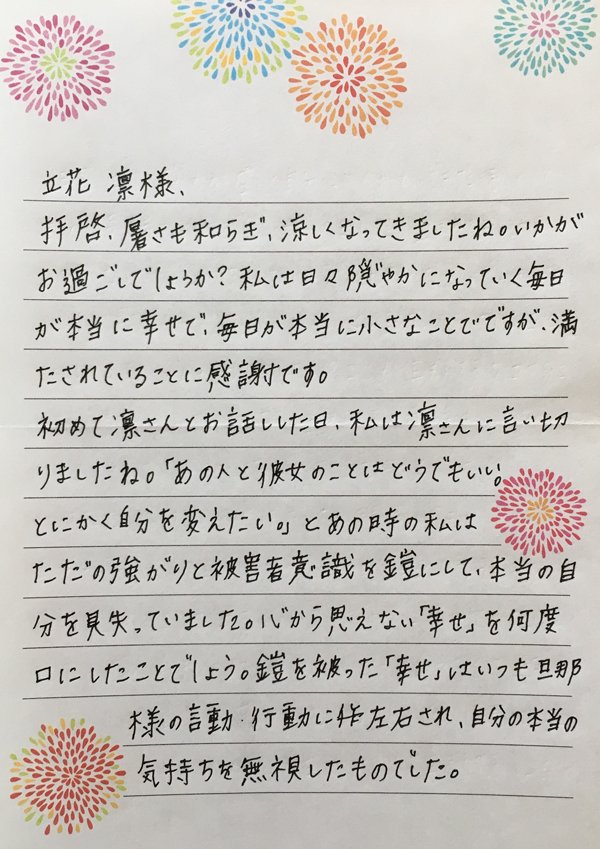 立花 凛様、
拝啓、暑さも和らぎ、涼しくなってきましたね。いかがお
お過ごしでしょうか？私は日々穏やかになっていく毎日
が本当に幸せで、毎日が本当に小さなことでですが、満
たされていることに感謝です。
初めて凛さんとお話しした日、私は凛さんに言い切
りましたね。「あの人と彼女のことはどうでもいい。
とにかく自分を変えたい。」とあの時の私は
ただの強がりと被害者意識を鎧にして、本当の自
分を見失っていました。心から思えない「幸せ」を何度
口にしたことでしょう。鎧を被った「幸せ」はいつも旦那
様の言動・行動に左右され、自分の本当の
気持ちを無視したものでした。